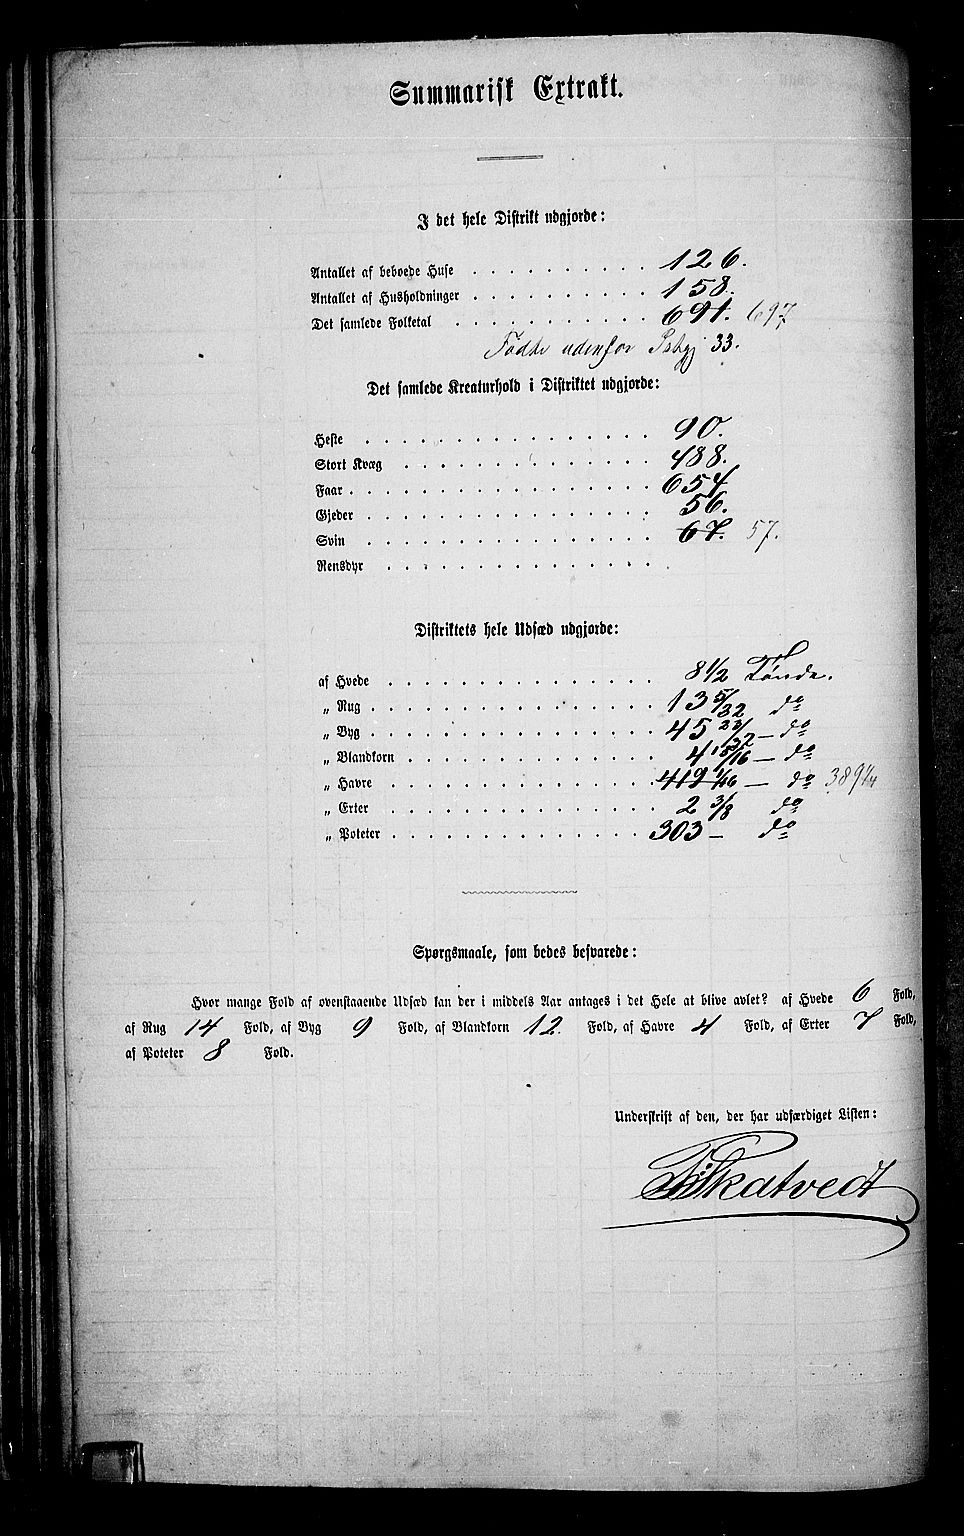 Summarisk Extrakt.
I det hele Distrikt udgjorde:
Antallet af beboede Huse . . . . . . . . . . 126.
Antallet af Husholdninger . . . . . . . . . . 158.
Det samlede Folketal . . . . . . . . . . . 691. 697
Fødte udenfor 33.
Det samlede Kreaturhold i Distriktet udgjorde:
Heste . . . . . . . . . . . . . . . . 90.
Stort Kvæg . . . . . . . . . . . . . . 488.
Faar . . . . . . . . . . . . . . . . . 654
Gjeder . . . . . . . . . . . . . . . . 56.
Svin . . . . . . . . . . . . . . . . 67. 57.
Rensdyr . . . . . . . . . . . . . . . .
Distriktets hele Udsæd udgjorde:
af Hvede . . . . . . . . . . . . . . . 8 1/2 Tønde.
„ Rug . . . . . . . . . . . . . . . . 13 5/32 do
„ Byg . . . . . . . . . . . . . . . . 45 23/32 — do
„ Blandkorn . . . . . . . . . . . . . . 4 15/16 — do
„ Havre . . . . . . . . . . . . . . . 419 1/16 — do 389 1/4
„ Erter . . . . . . . . . . . . . . . 2 3/8 do
„ Poteter . . . . . . . . . . . . . . 303 — do
Spørgsmaale, som bedes besvarede:
Hvor mange Fold af ovenstaaende Udsæd kan der i middels Aar antages i det Hele at blive avlet? af Hvede 6 Fold,
af Rug 14 Fold, af Byg 9 Fold, af Blandkorn 12 Fold, af Havre 4 Fold, af Erter 7 Fold,
af Poteter 8 Fold.
Underskrift af den, der har udfærdiget Listen:
Skatvedt